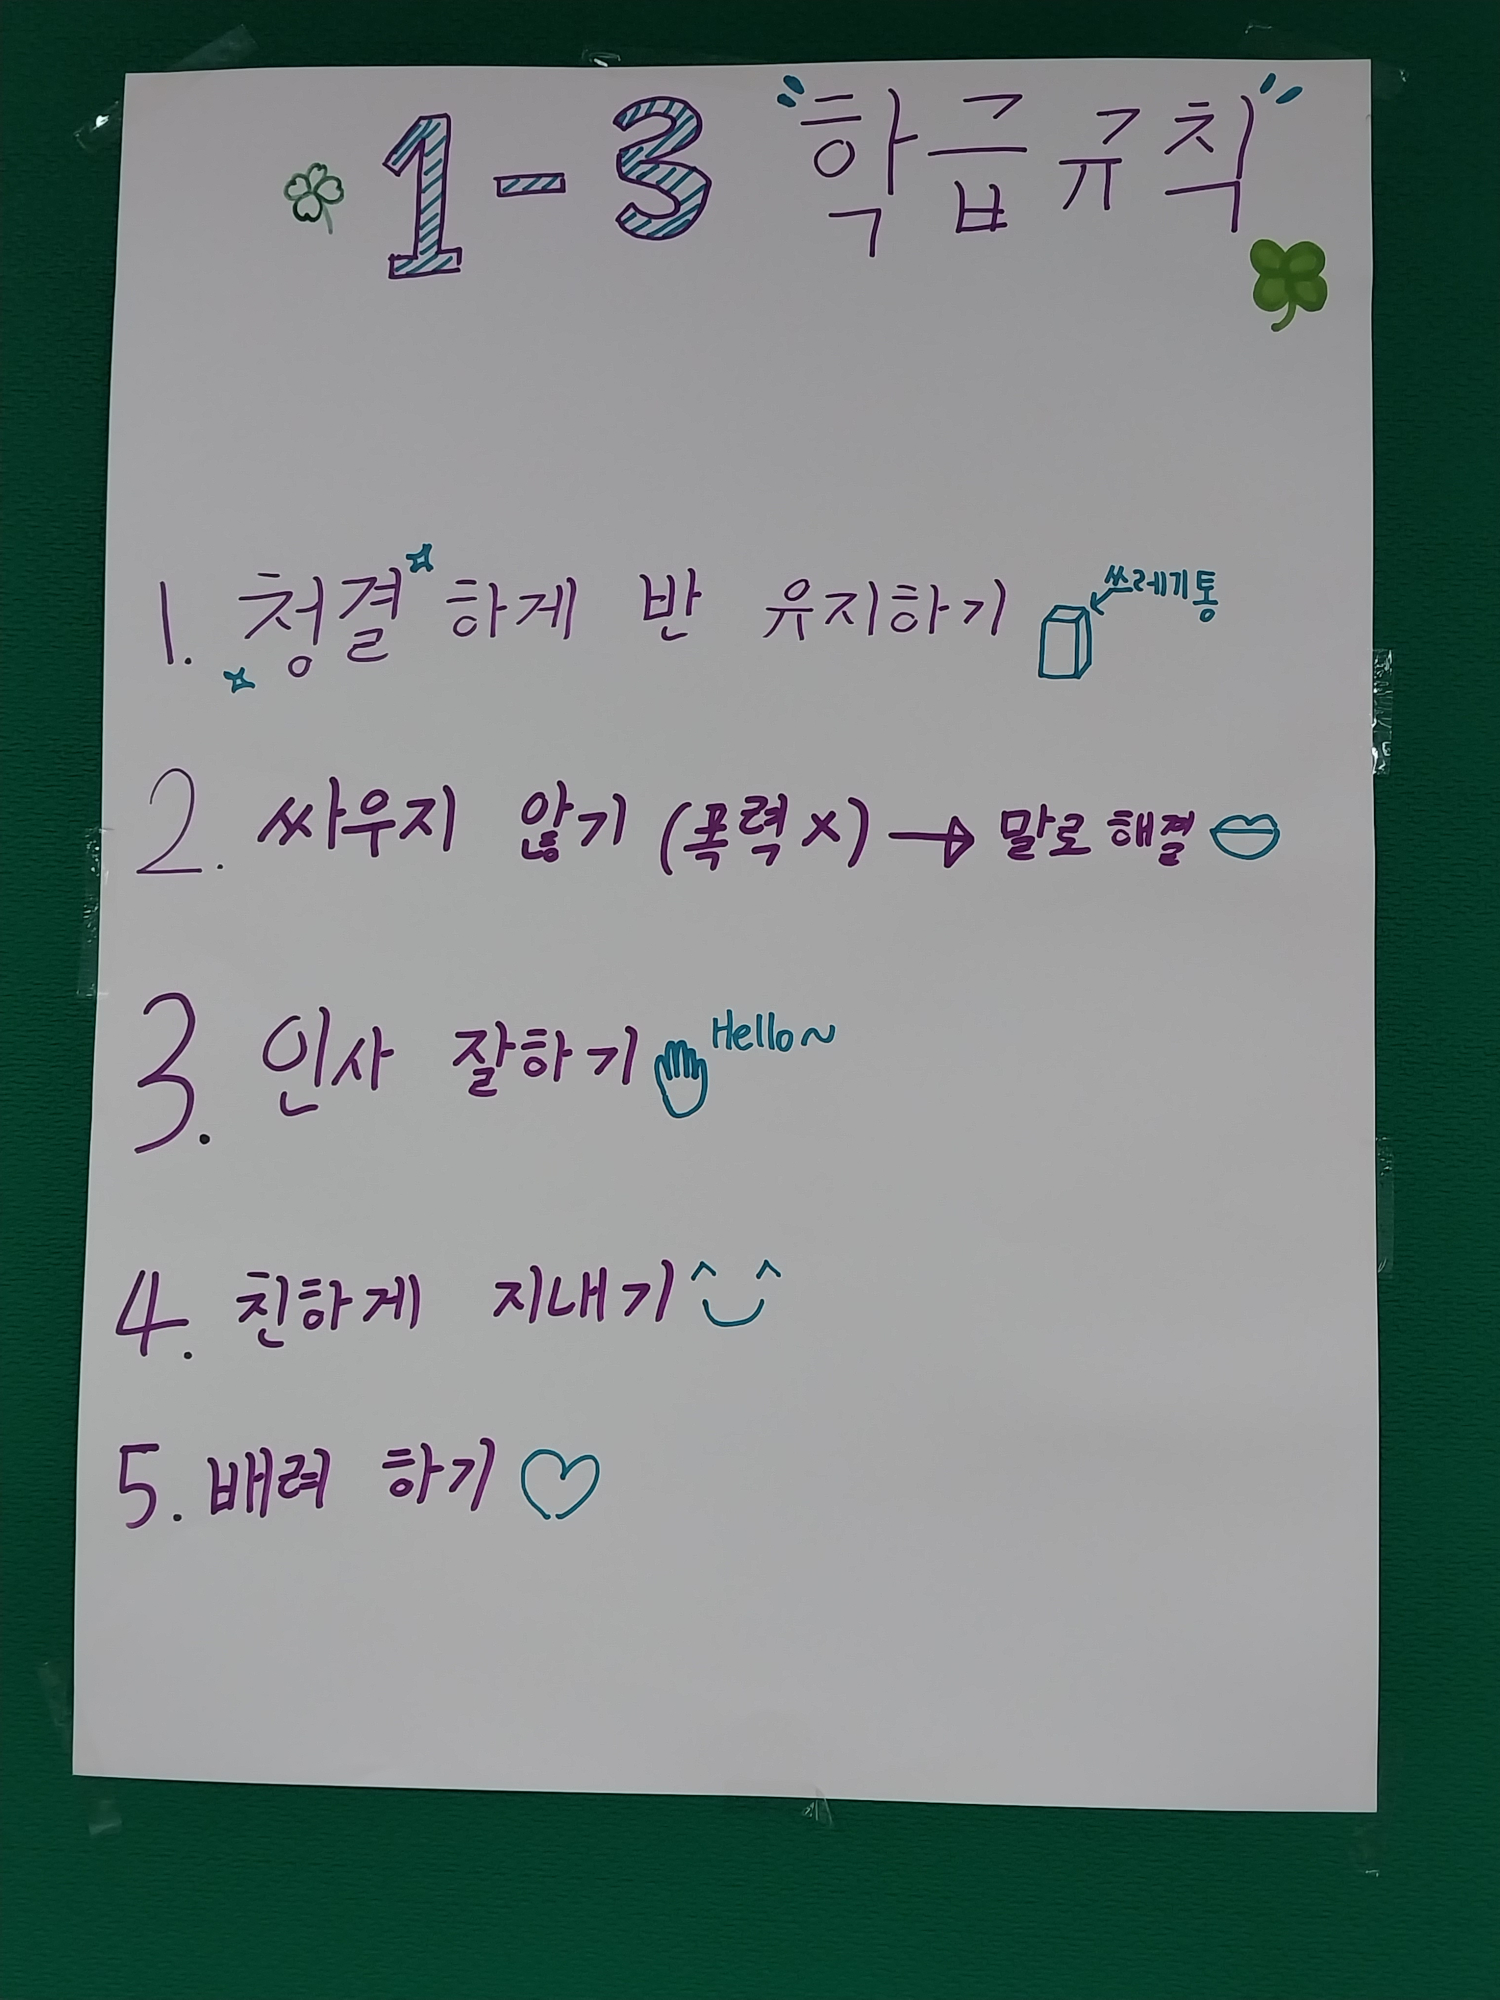 1-3 "학급규칙"
1. 청결하게 반 유지하기 쓰레기통
2. 싸우지 않기 (폭력 X) → 말로 해결
3. 인사 잘하기 Hello~
4. 친하게 지내기 ^ ^
5. 배려 하기 ♡